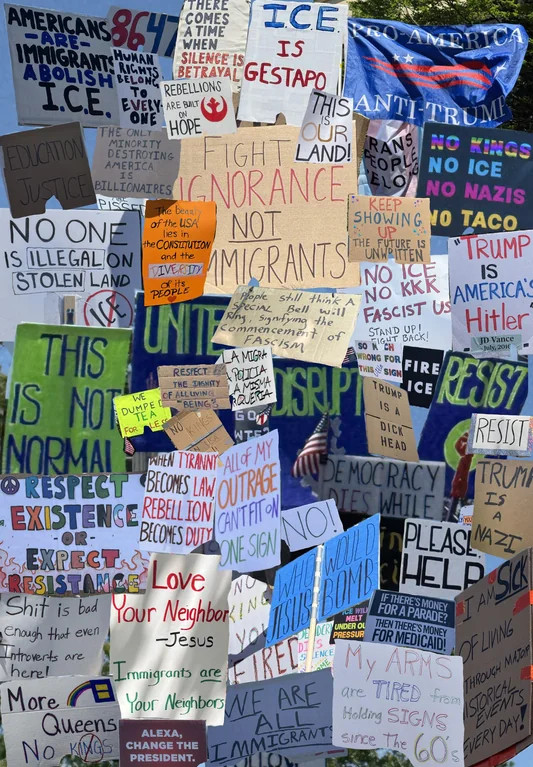 AMERICANS
-ARE-
IMMIGRANTS
ABOLISH
I.C.E.
8647
HUMAN
RIGHTS
BELONG
TO
EVERY-
ONE
THERE
COMES A
TIME WHEN
SILENCE IS
BETRAYAL
REBELLIONS
ARE BUILT ON
HOPE
I.C.E.
IS
GESTAPO
THIS
IS
OUR
LAND!
PRO-AMERICA
ANTI-TRUMP
EDUCATION
JUSTICE
THE ONLY
MINORITY
DESTROYING
AMERICA
IS
BILLIONAIRES
FIGHT
IGNORANCE
NOT
IMMIGRANTS
TRANS
PEOPLE
BELO
NO KINGS
NO ICE
NO NAZIS
NO TACO
NO ONE
IS ILLEGAL ON
STOLEN LAND
ICE
The beauty
of the USA
lies in
the CONSTITUTION
and the
DIVERSITY
of its
PEOPLE
KEEP
SHOWING
UP
THE FUTURE IS
UNWRITTEN
NO ICE
NO KKK
FASCIST US
STAND UP!
FIGHT BACK!
"TRUMP
IS
AMERICA'S
Hitler"
JD Vance
July, 2016
People still think a
Special Bell will
Ring, Signifying the
Commencement of
FASCISM
THIS
IS NOT
NORMAL
UNITE
DISRUPT
RESIST
WE
DUMPED
TEA
FOR LESS
RESPECT
THE DIGNITY
OF ALL LIVING
BEINGS
NO KINGS
LA MIGRA
POLICIA
LA MISMA
PORQUERIA
SO MUCH
WRONG FOR
THIS SIGN
FIRE
ICE
TRUMP
IS A
DICK
HEAD
RESIST
WHEN TYRANNY
BECOMES LAW,
REBELLION
BECOMES
DUTY
ALL OF MY
OUTRAGE
CAN'T FIT ON
ONE SIGN
DEMOCRACY
DIES WHILE
TRUMP
IS
A
NAZI
RESPECT
EXISTENCE
-OR-
EXPECT
RESISTANCE
NO!
PLEASE
HELP
WHAT
WOULD
JESUS
BOMB
Shit is bad
enough that even
Introverts are
here!
Love
Your Neighbor
-Jesus
Immigrants are
Your Neighbors
ICE WILL
MELT
UNDER OUR
PRESSURE
IF THERE'S MONEY
FOR A PARADE?
THEN THERE'S MONEY
FOR MEDICAID!
I AM SICK
OF LIVING
THROUGH MAJOR
HISTORICAL
EVENTS
EVERY DAY!
More
Queens
NO KINGS
ALEXA,
CHANGE THE
PRESIDENT.
FIRED
WE ARE
ALL
IMMIGRANTS
My ARMS
are TIRED from
Holding SIGNS
since The 60's